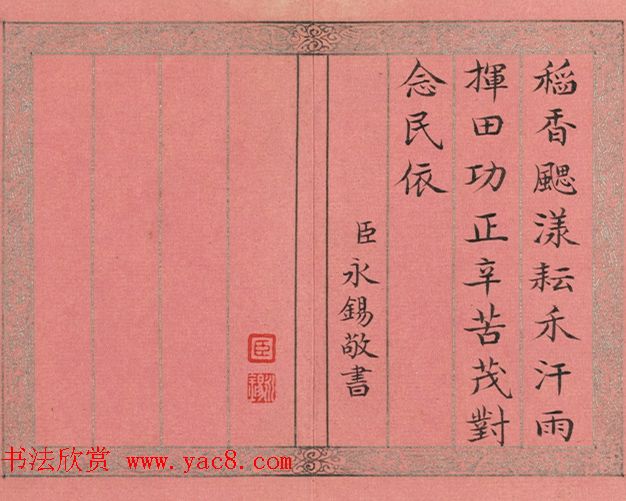 稻香颸漾耘禾汗雨
揮田功正辛苦茂對
念民依
臣永錫敬書
臣
永錫
书法欣赏 www.yac8.com